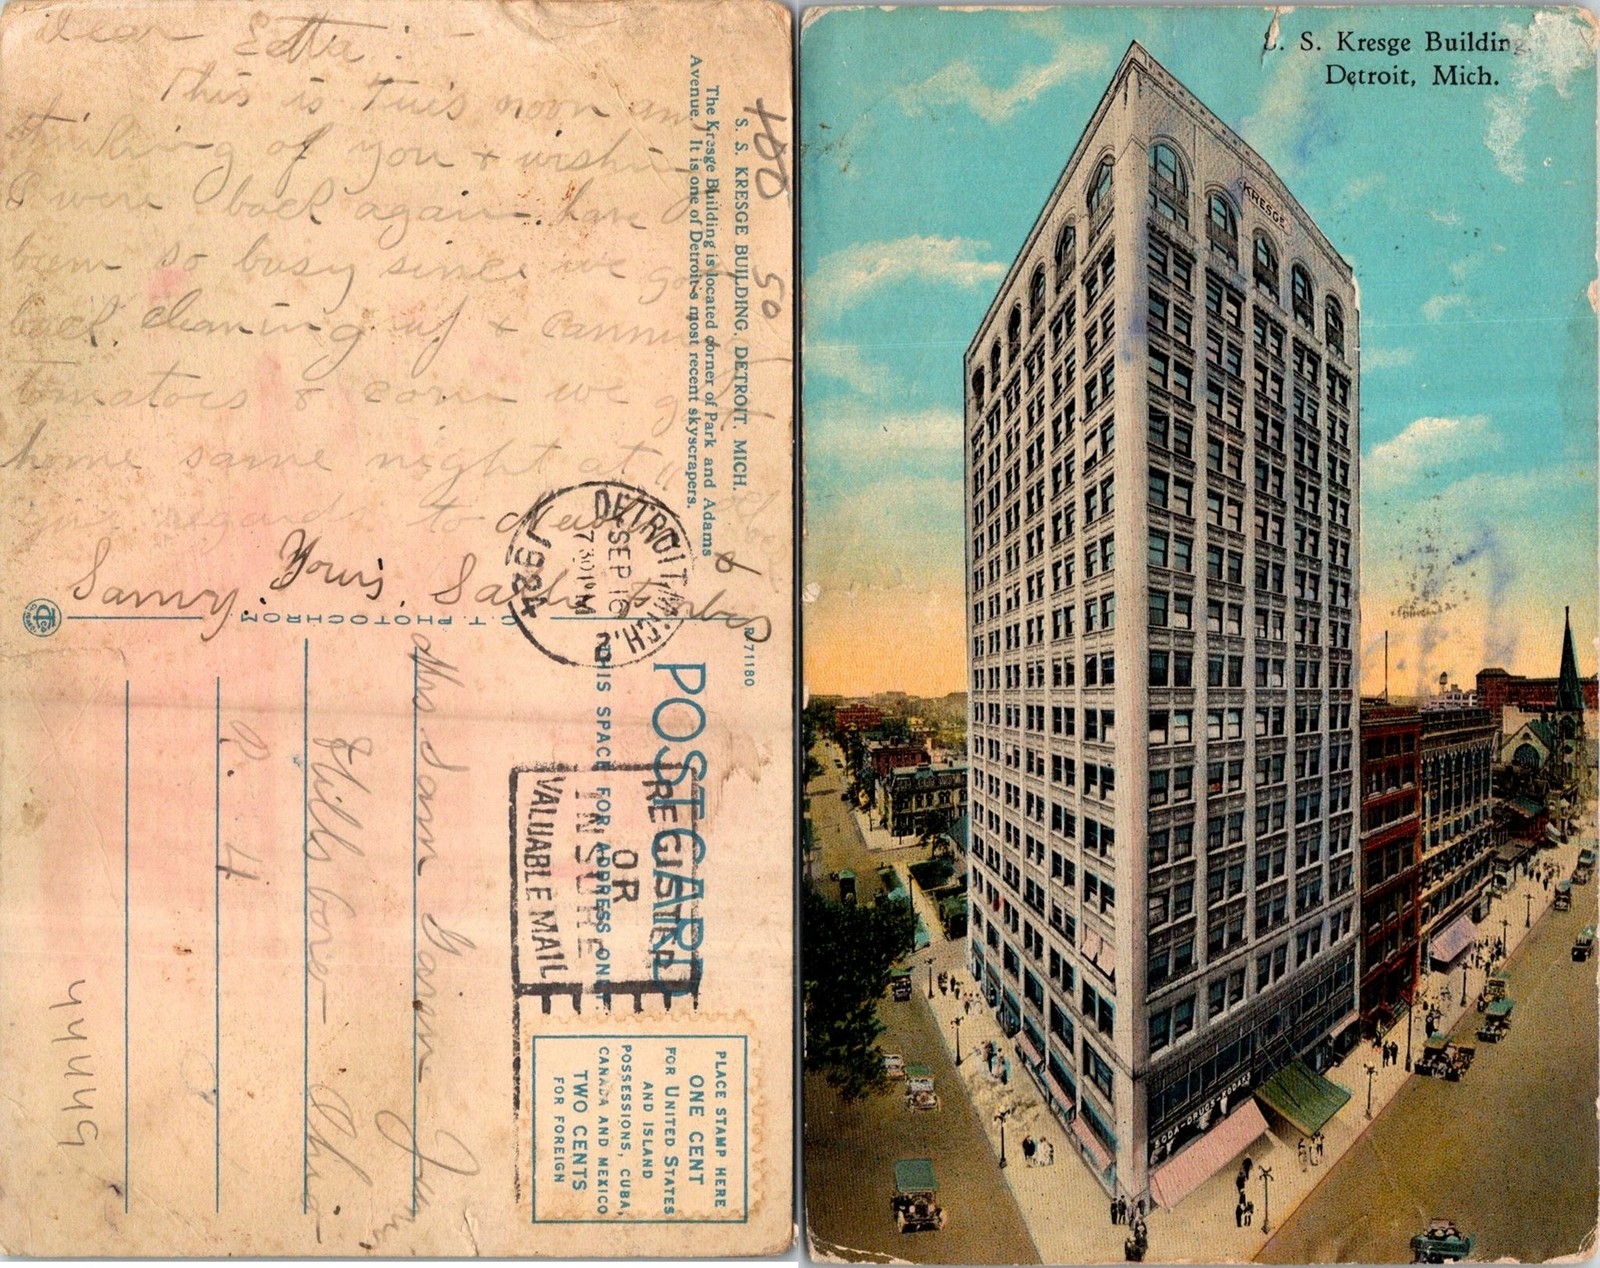 Dear Etta :-
This is Tues noon am
thinking of you & wishing
I were back again. have
been so busy since we got
back cleaning up & canning
tomatoes & corn we got
home same night at 11
give regards to
Yours.
& Samy. Forbes
S. S. KRESGE BUILDING, DETROIT, MICH.
The Kresge Building is located corner of Park and Adams
Avenue. It is one of Detroit's most recent skyscrapers.
100
50
R-71180
POST CARD
THIS SPACE FOR ADDRESS ONLY
C. T. PHOTOCHROM
DETROIT, MICH.
SEP 16
7 30 PM
1924
2
REGISTER
OR
INSURE
VALUABLE MAIL
PLACE STAMP HERE
ONE CENT
FOR UNITED STATES
AND ISLAND
POSSESSIONS, CUBA,
CANADA AND MEXICO
TWO CENTS
FOR FOREIGN
Mrs Sam
Hillsboro
Ohio
R. 4
S. S. Kresge Building,
Detroit, Mich.
KRESGE
SODA - DRUGS - KODAKS